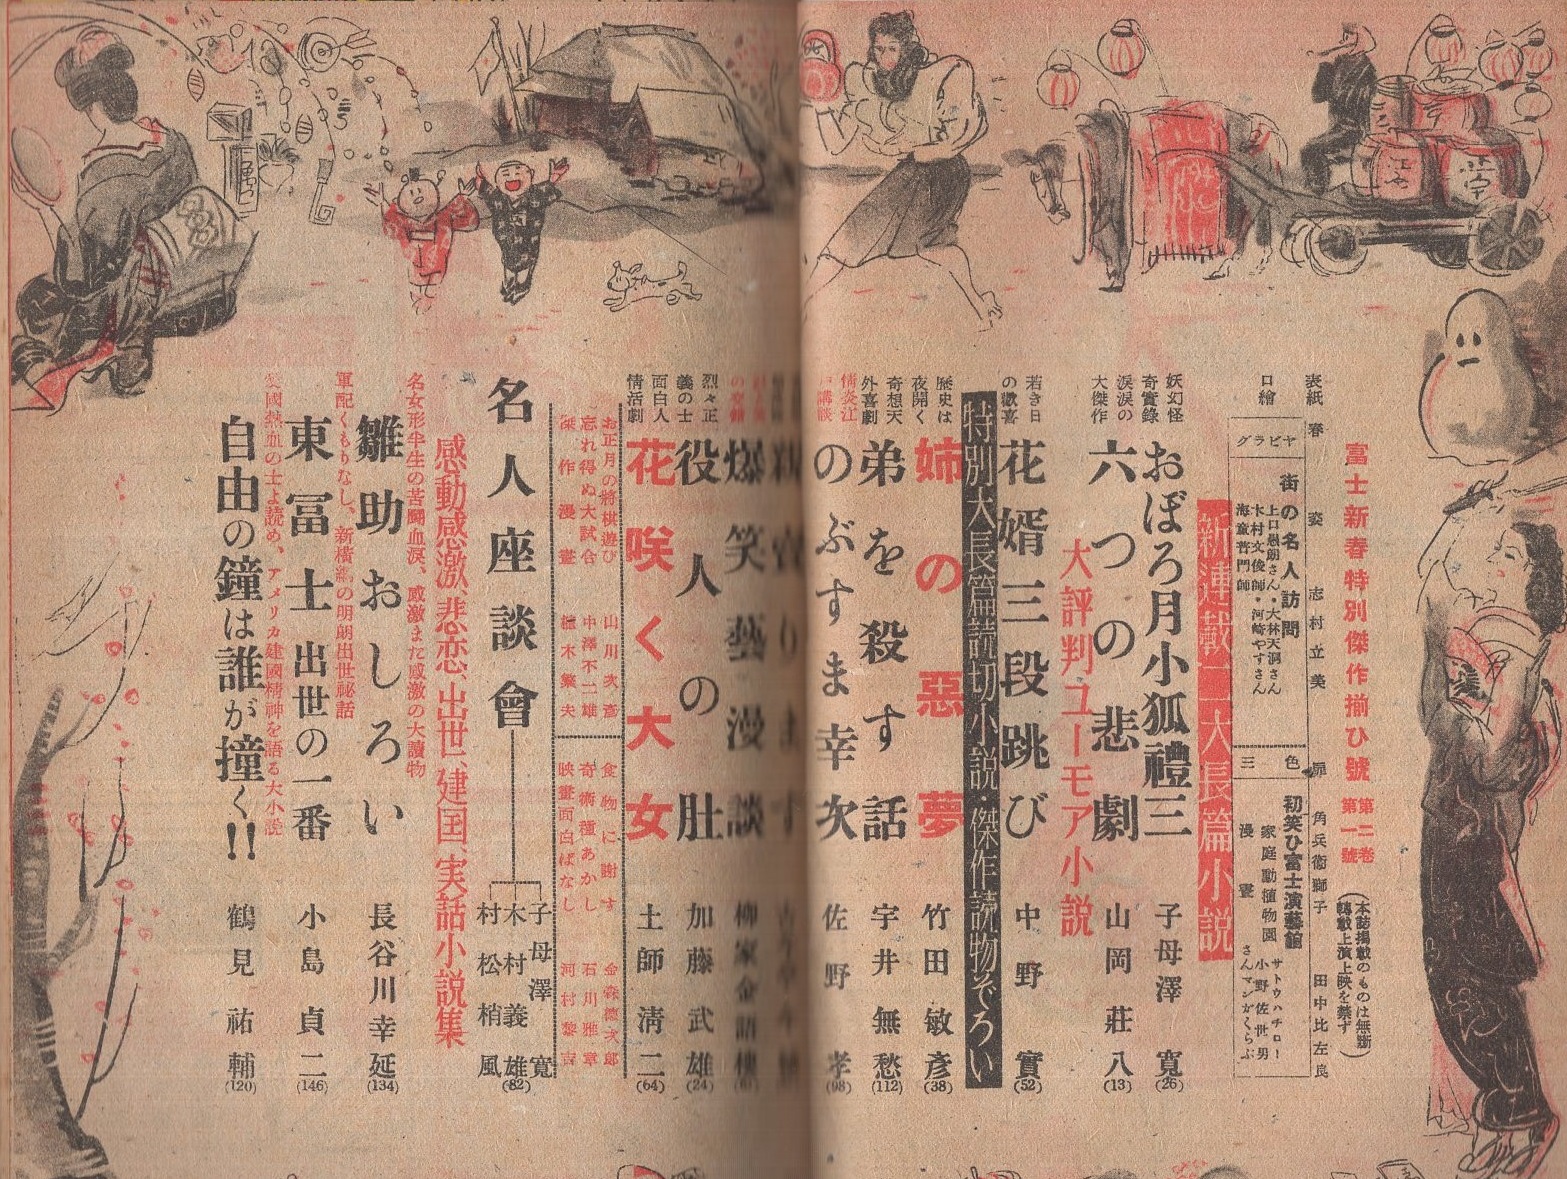 富士新春特別傑作揃ひ號
第二卷
第一號
(本誌掲載のものは無斷
轉載上演上映を禁ず)
表紙 春姿 志村立美
扉 角兵衞獅子 田中比左良
口繪
グラビヤ
街の名人訪問
上口愚朗さん・大林天洞さん
木村文俊師・河崎やすさん
海童普門師
三色
初笑ひ富士演藝館
家庭動植物園
漫畫
サトウハチロー
小野佐世男
さんマンガくらぶ
新連載二大長篇小説
妖幻怪奇實錄
おぼろ月小狐禮三
子母澤寛
(26)
涙涙の大傑作
六つの悲劇
山岡莊八
(13)
大評判ユーモア小説
若き日の歡喜
花婿三段跳び
中野實
(52)
特別大長篇讀切小説・傑作読物ぞろい
歴史は夜開く
姉の惡夢
竹田敏彦
(38)
奇想天外喜劇
弟を殺す話
宇井無愁
(112)
情炎江戸講談
のぶすま幸次
佐野孝
(98)
爆笑藝漫談
柳家金語樓
烈々正義の士
役人の肚
加藤武雄
(24)
面白人情活劇
花咲く大女
土師淸二
(64)
お正月の將棋遊び 山川次彦
忘れ得ぬ大試合 中澤不二雄
傑作漫畫
食物に謝す 金森德次郎
奇術種あかし 石川雅章
映畫面白ばなし 河村黎吉
名人座談會
子母澤寛
木村義雄
村松梢風
(82)
感動感激、悲恋、出世、建国、実話小説集
名女形半生の苦闘血涙、感激また感激の大讀物
雛助おしろい
長谷川幸延
(134)
軍配くもりなし、新横綱の明朗出世祕話
東冨士出世の一番
小島貞二
(146)
愛國熱血の士よ読め、アメリカ建國精神を語る大小説
自由の鐘は誰が撞く!!
鶴見祐輔
(120)